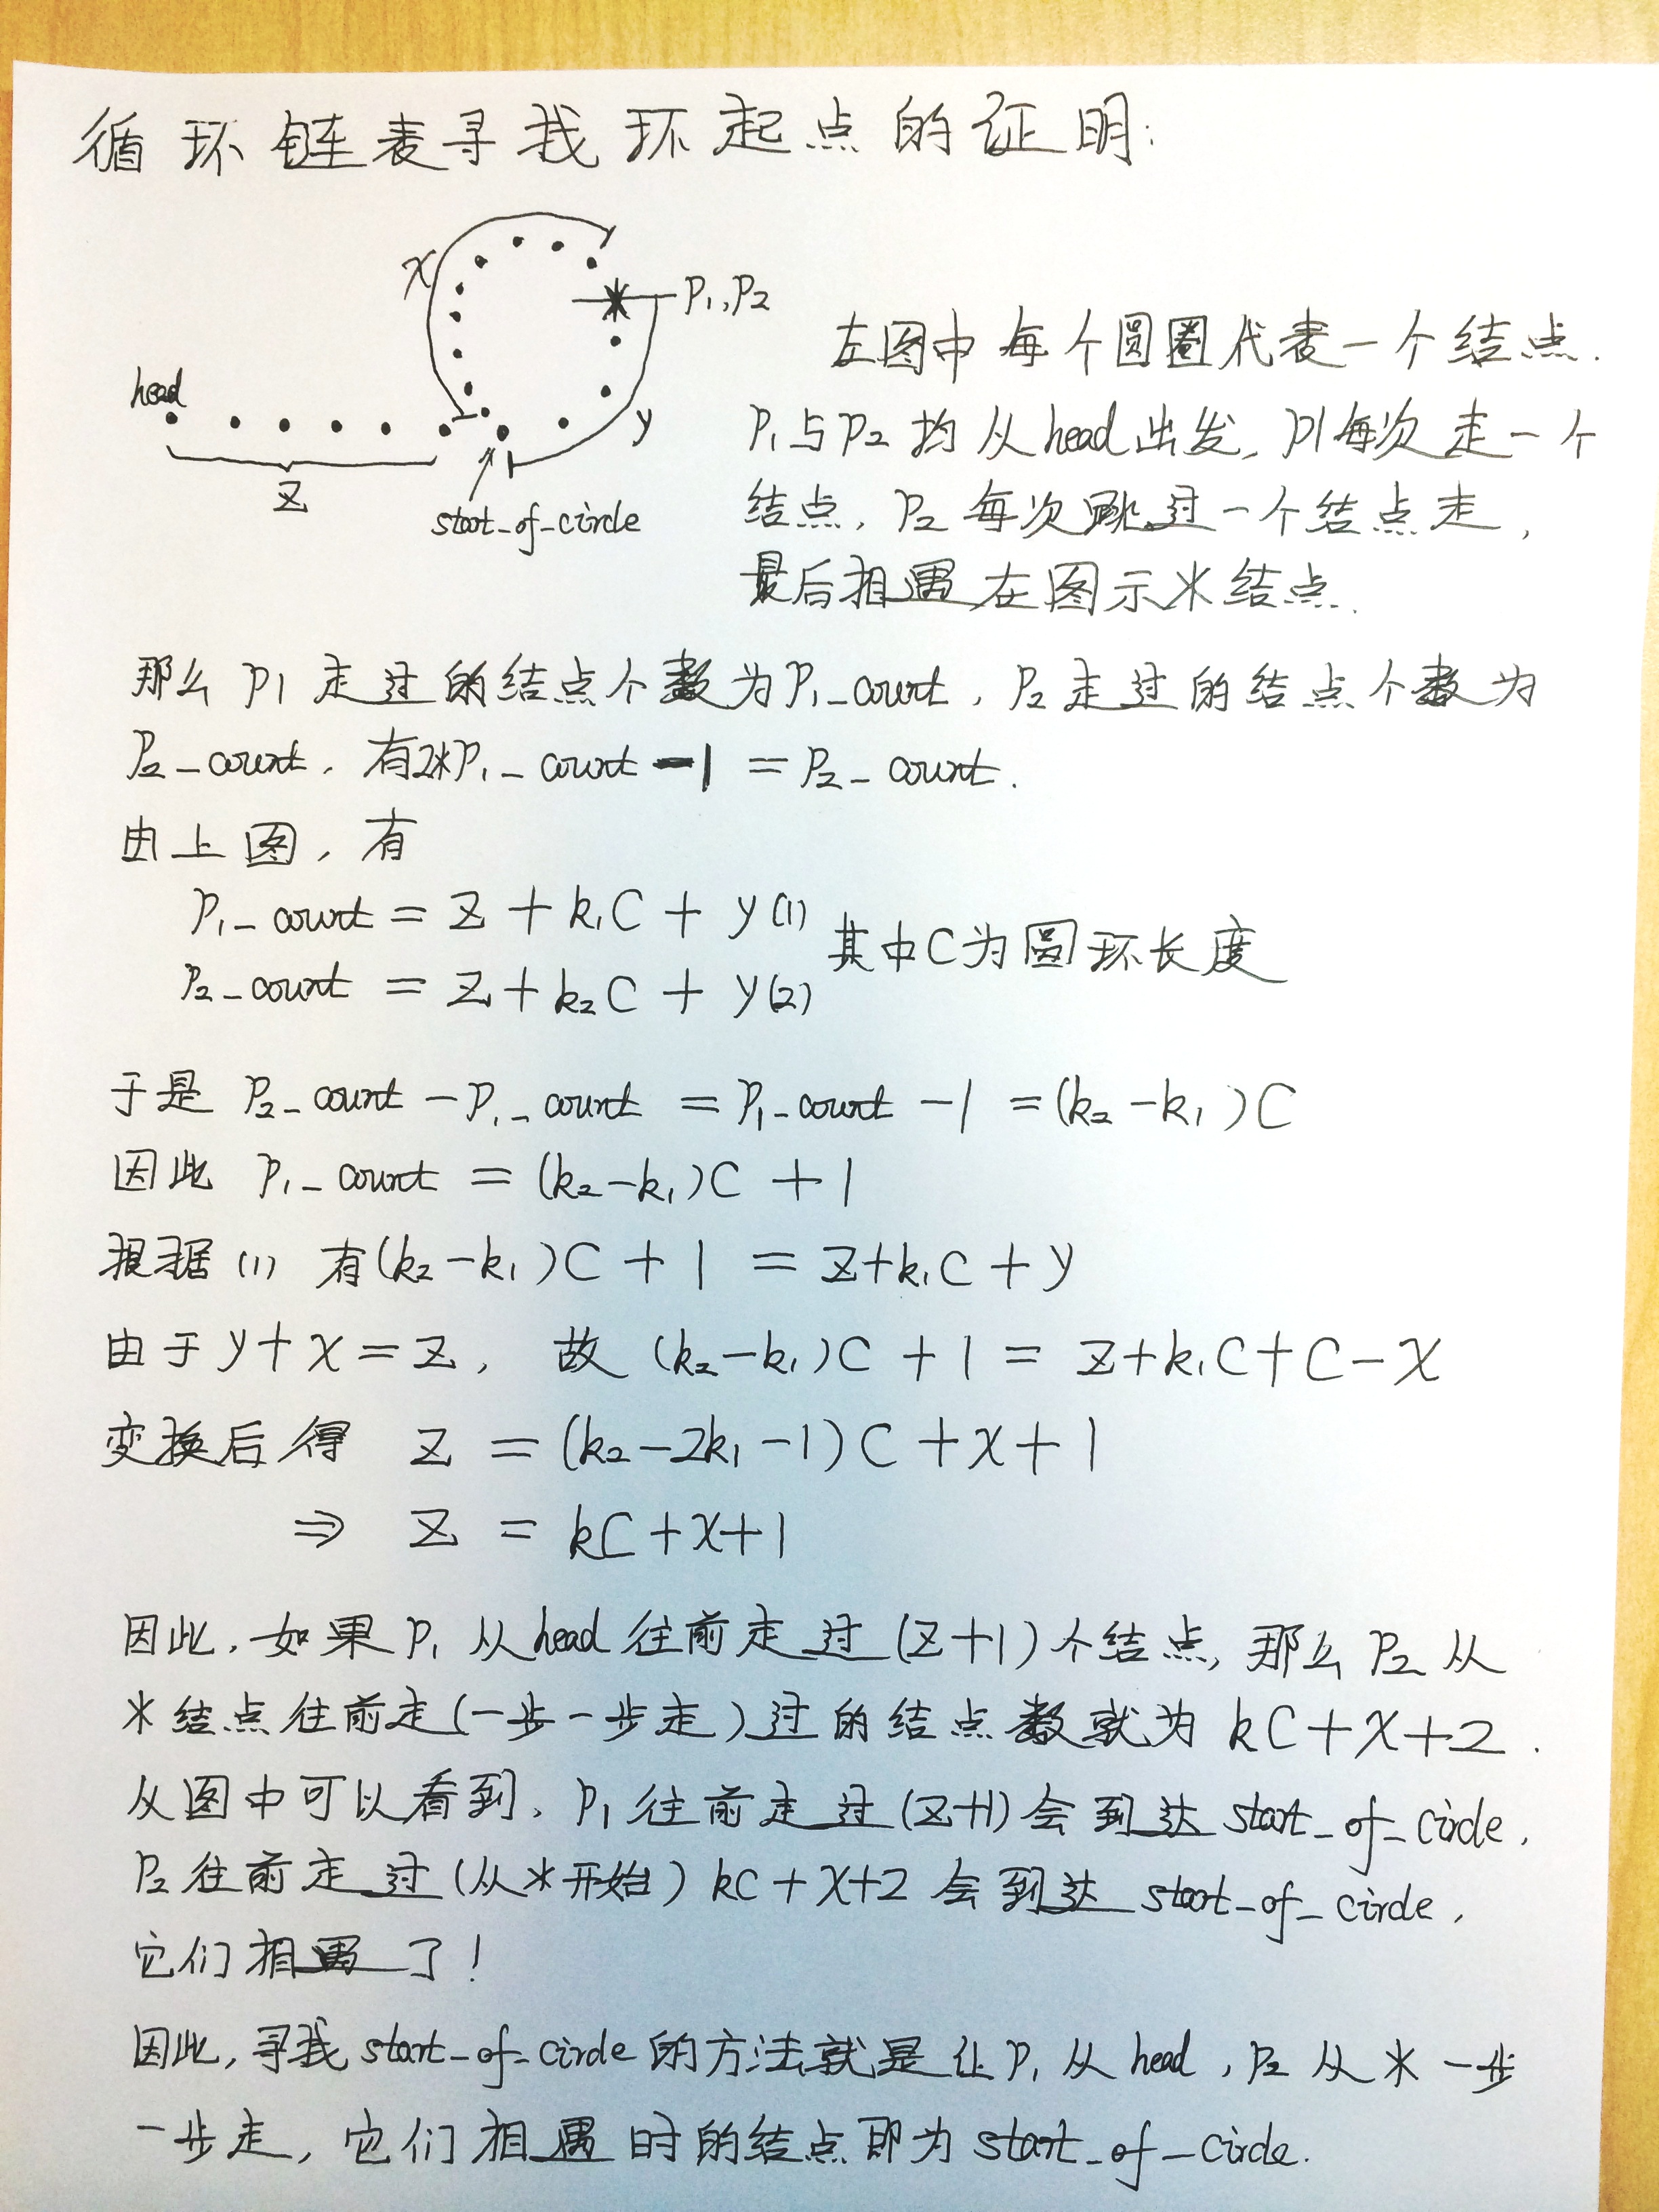 循环链表寻找环起点的证明:
head
Z
start_of_circle
x
y
P1,P2
左图中每个圆圈代表一个结点.
P1与P2均从head出发, P1每次走一个
结点, P2每次跳过一个结点走,
最后相遇在图示*结点.
那么P1走过的结点个数为P1_count, P2走过的结点个数为
P2_count, 有2*P1_count-1=P2_count.
由上图, 有
P1_count = Z + k1C + y (1)
P2_count = Z + k2C + y (2)
其中C为圆环长度
于是 P2_count - P1_count = P1_count - 1 = (k2-k1)C
因此 P1_count = (k2-k1)C + 1
根据(1) 有(k2-k1)C + 1 = Z + k1C + y
由于 y + x = Z, 故 (k2-k1)C + 1 = Z + k1C + C - x
变换后得 Z = (k2-2k1-1)C + x + 1
⇒ Z = kC + x + 1
因此, 如果P1从head往前走过(Z+1)个结点, 那么P2从
*结点往前走(一步一步走)过的结点数就为 kC+x+2.
从图中可以看到, P1往前走过(Z+1)会到达start_of_circle,
P2往前走过(从*开始) kC+x+2会到达start_of_circle,
它们相遇了!
因此, 寻找start_of_circle的方法就是让P1从head, P2从*一步
一步走, 它们相遇时的结点即为start_of_circle.